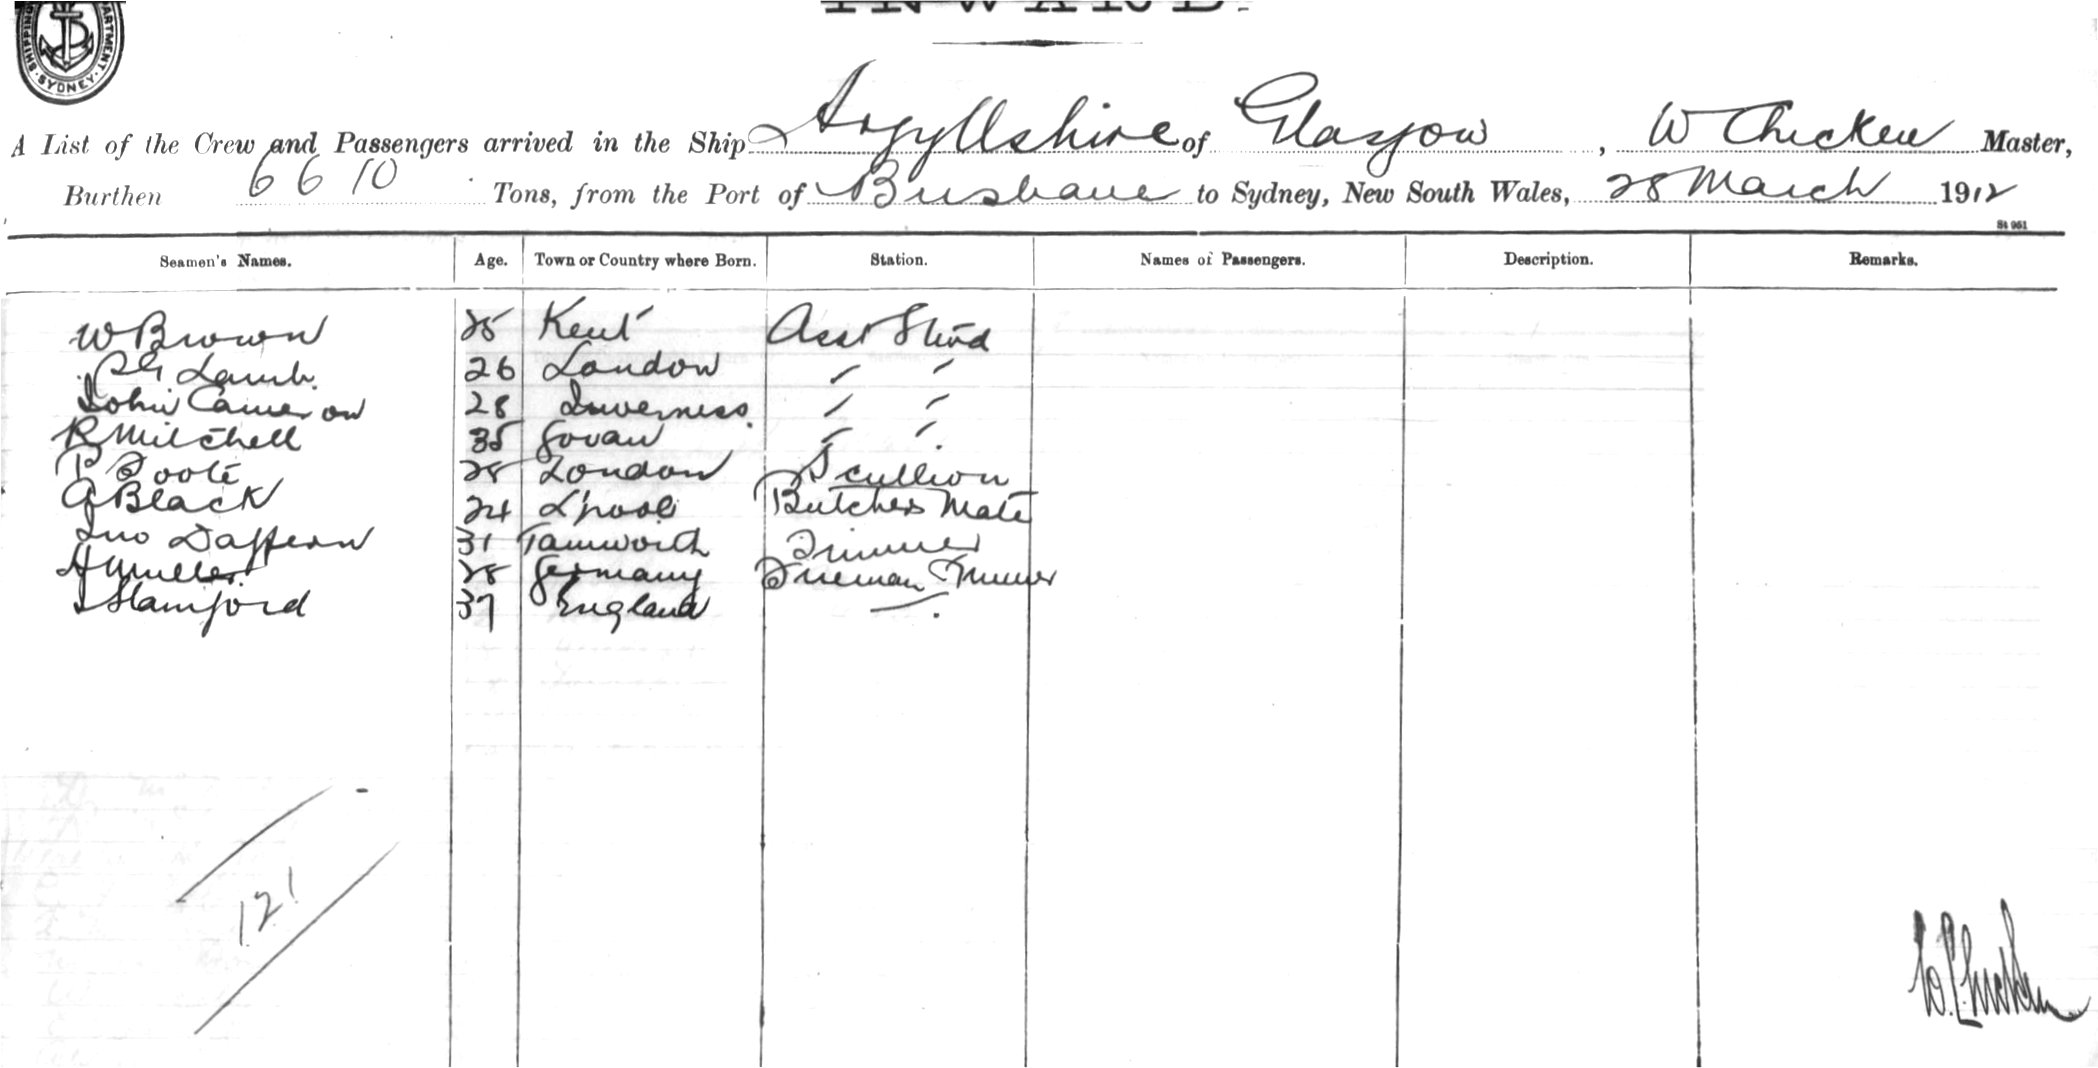 SHIPPING DEPARTMENT SYDNEY
INWARD.
A List of the Crew and Passengers arrived in the Ship Argyllshire of Glasgow, W Chicken Master,
Burthen 6610 Tons, from the Port of Brisbane to Sydney, New South Wales, 28 March 1912
St 951
Seamen's Names. Age. Town or Country where Born. Station. Names of Passengers. Description. Remarks.
W Brown 25 Kent Asst Stwd
Lamb 26 London " "
John Cameron 28 Inverness " "
R Mitchell 35 Govan " "
P Foote 28 London Scullion
G Black 24 L'pool Butchers Mate
Jno Daffern 31 Tamworth Trimmer
H Muller 28 Germany Fireman Trimmer
J Stamford 37 England "
121
W. Chicken